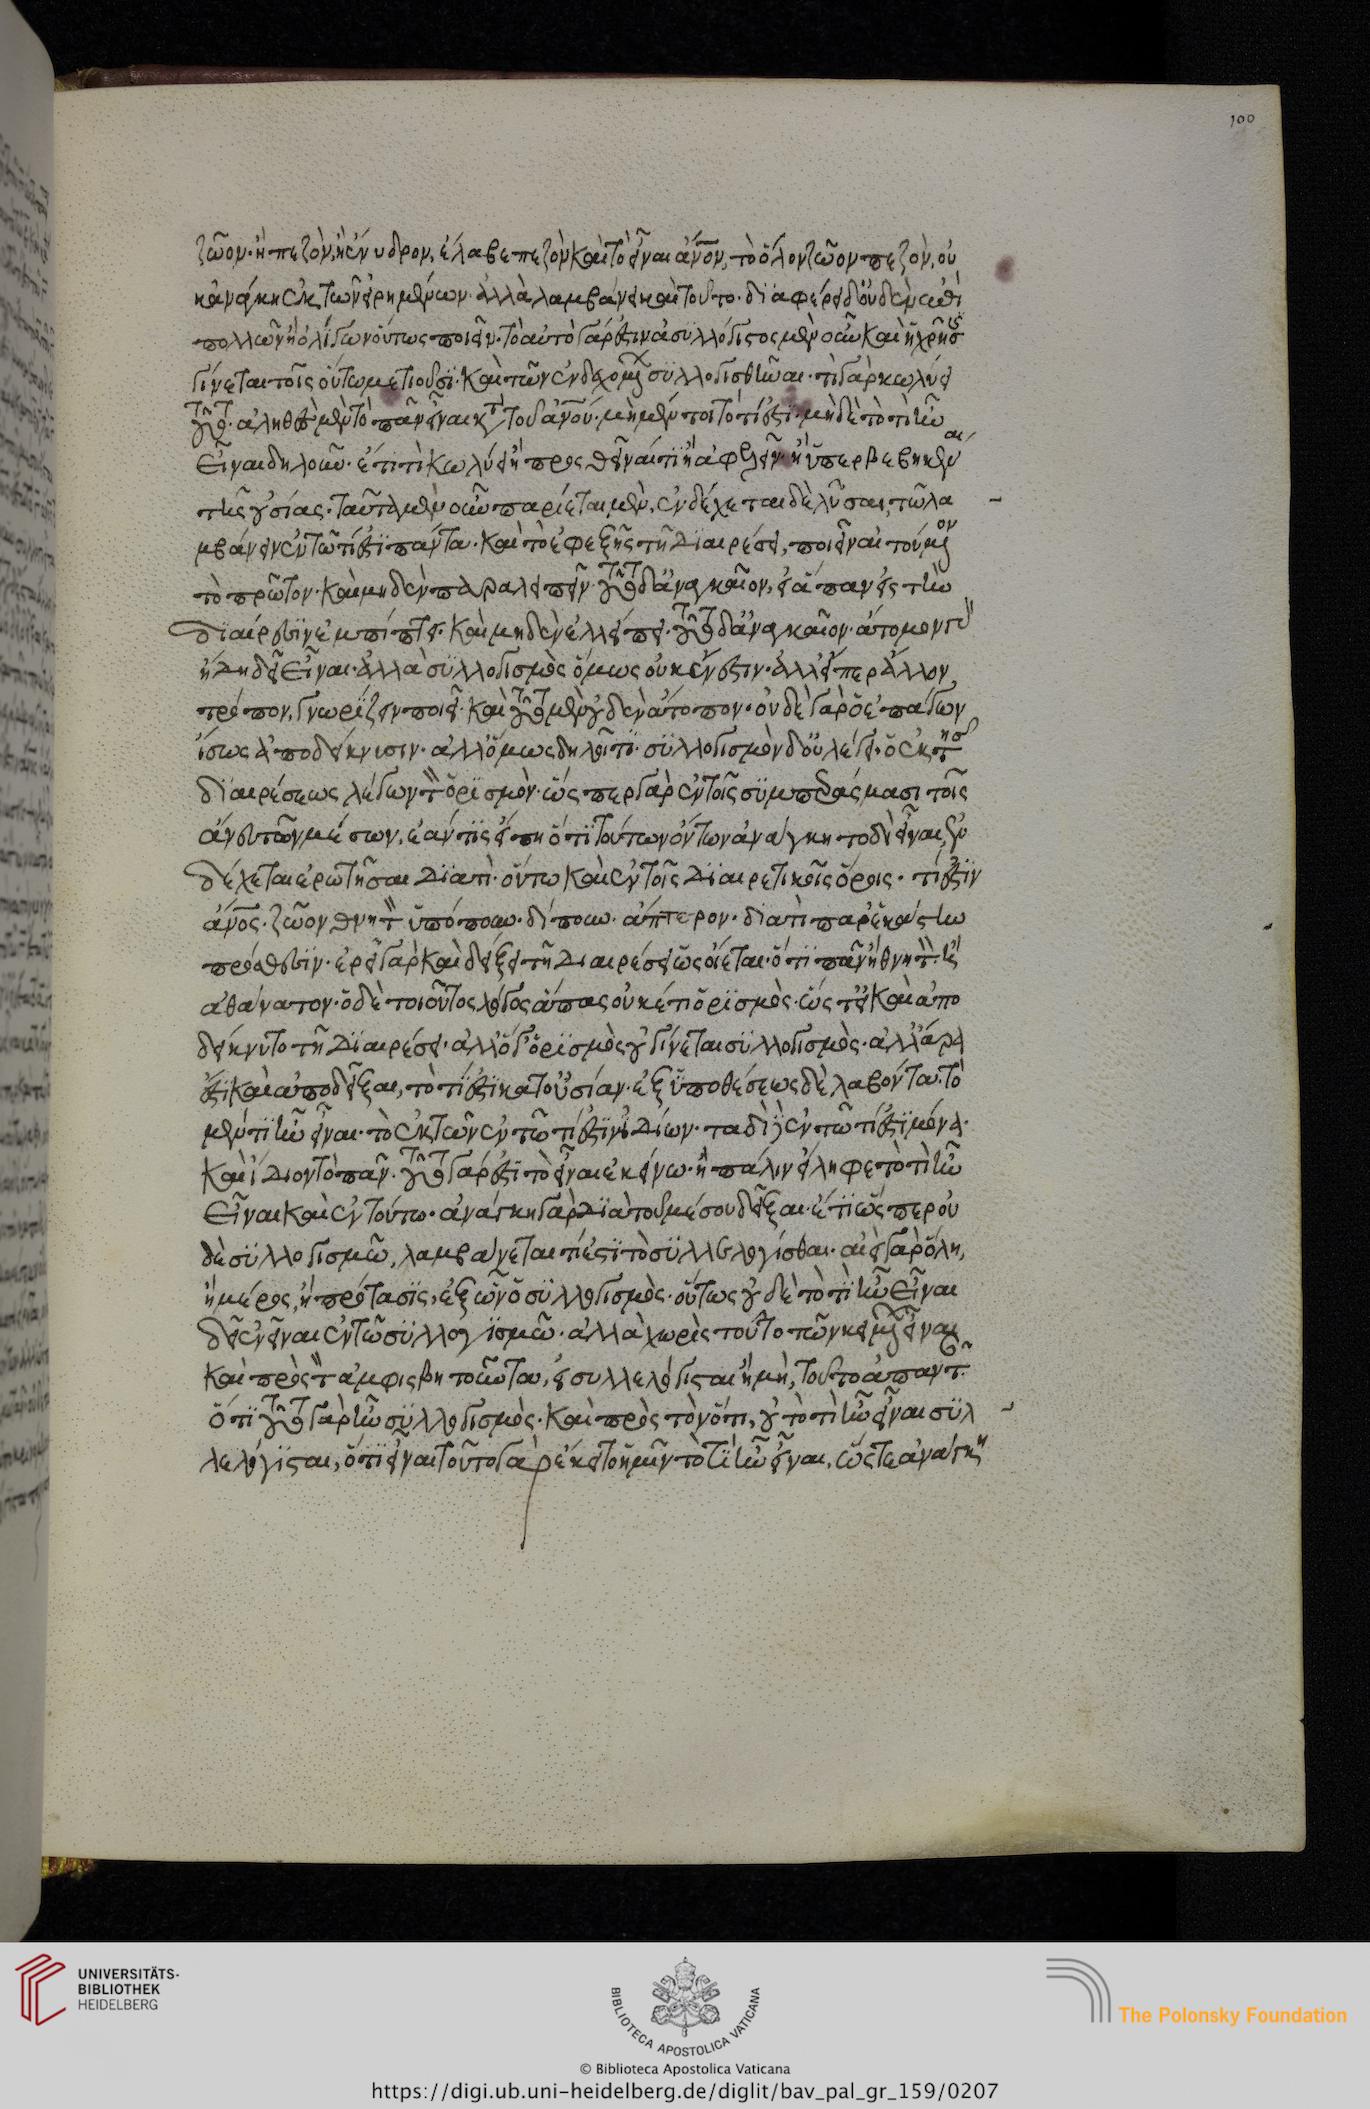 ζῶον· ἢ πεζὸν, ἢ ἔνυδρον, ἔλαβε πεζὸν καὶ τὸ εἶναι ἄνον, τὸ ὅλον ζῶον πεζὸν, οὐ
κ ἀνάγκη ἐκ τῶν εἰρημένων· ἀλλὰ λαμβάνει καὶ τοῦτο· διαφέρει δ' οὐδὲν ἐπὶ
πολλῶν ἢ ὀλίγων οὕτως ποιεῖν· τὸ αὐτὸ γάρ ἐστιν ἀσυλλόγιστος μὲν οὖν καὶ ἡ χρῆσις
γίνεται τοῖς οὕτω μετιοῦσι· καὶ τῶν ἐνδεχομένων συλλογισθῆναι· τί γὰρ κωλύει
τοῦτο· ἀληθὲς μὲν τὸ πᾶν εἶναι κατὰ τοῦ ἀνου· μὴ μέντοι τὸ τί ἐστι· μηδὲ τὸ τί ἦν
εἶναι δηλοῦν· ἔτι τί κωλύει ἢ προσθεῖναί τι ἢ ἀφελεῖν· ἢ ὑπερβεβηκέναι
τῆς οὐσίας· ταῦτα μὲν οὖν παρίεται μὲν, ἐνδέχεται δὲ λῦσαι, τῶ λα
μβάνειν ἐν τῶ τί ἐστι πάντα· καὶ τὸ ἐφεξῆς τῆ διαιρέσει, ποιεῖν αἰτούμενον
τὸ πρῶτον· καὶ μηδὲν παραλείπειν· τοῦτο δ' ἀναγκαῖον, εἰ ἅπαν εἰς τὴν
διαίρεσιν ἐμπίπτει· καὶ μηδὲν ἐλλείπει· τοῦτο δ' ἀναγκαῖον· ἄτομον γὰρ
ἤδη δεῖ εἶναι· ἀλλὰ συλλογισμὸς ὅμως οὐκ ἔνεστιν· ἀλλ' εἴπερ ἄλλον
τρόπον, γνωρίζειν ποιεῖ· καὶ τοῦτο μὲν οὐδὲν ἄτοπον· οὐδὲ γὰρ ὁ ἐπάγων
ἴσως ἀποδείκνυσιν· ἀλλ' ὅμως δηλοῖ τι· συλλογισμὸν δ' οὐ λέγει· ὁ ἐκ τῆς
διαιρέσεως λέγων τὸν ὁρισμὸν· ὥσπερ γὰρ ἐν τοῖς συμπεράσμασι τοῖς
ἄνευ τῶν μέσων, ἐάν τις εἴπη ὅτι τούτων ὄντων ἀνάγκη τοδὶ εἶναι, ἐν
δέχεται ἐρωτῆσαι διατί· οὕτω καὶ ἐν τοῖς διαιρετικοῖς ὅροις· τί ἐστιν
ἄνος· ζῶον θνητὸν ὑπόπουν· δίπουν· ἄπτερον· διατί παρ' ἑκάστην
πρόσθεσιν· ἐρεῖ γὰρ καὶ δείξει τῆ διαιρέσει ὡς οἴεται· ὅτι πᾶν ἢ θνητὸν ἢ
ἀθάνατον· ὁ δὲ τοιοῦτος λόγος ἅπας οὐκ ἔστι ὁρισμὸς· ὥστ' εἰ καὶ ἀπο
δείκνυτο τῆ διαιρέσει· ἀλλ' ὅ γ' ὁρισμὸς οὐ γίνεται συλλογισμὸς· ἀλλ' ἆρα
ἔστι καὶ ἀποδεῖξαι, τὸ τί ἐστι κατ' οὐσίαν· ἐξ ὑποθέσεως δὲ λαβόντα· τὸ
μὲν τί ἦν εἶναι· τὸ ἐκ τῶν ἐν τῶ τί ἐστιν ἰδίων· ταδὶ δὲ ἐν τῶ τί ἐστι μόνα·
καὶ ἴδιον τὸ πᾶν· τοῦτο γάρ ἐστι τὸ εἶναι ἐκείνω· ἢ πάλιν εἴληφε τὸ τί ἦν
εἶναι καὶ ἐν τούτω· ἀνάγκη γὰρ διὰ τοῦ μέσου δεῖξαι· ἔτι ὥσπερ οὐ
δὲ συλλογισμῶ, λαμβάνεται τί ἐστι τὸ συλλελογίσθαι· αἰεὶ γὰρ ὅλη,
ἢ μέρος, ἡ πρότασις, ἐξ ὧν ὁ συλλογισμὸς· οὕτως οὐδὲ τὸ τί ἦν εἶναι
δεῖ ἐνεῖναι ἐν τῶ συλλογισμῶ· ἀλλὰ χωρὶς τοῦτο τῶν κειμένων εἶναι
καὶ πρὸς τὸν ἀμφισβητοῦντα, εἰ συλλελόγισται ἢ μὴ, τοῦτο ἀπαντᾶν
ὅτι τοῦτο γὰρ ἦν συλλογισμὸς· καὶ πρὸς τὸν ὅτι, οὐ τὸ τί ἦν εἶναι συλ
λελόγισται, ὅτι εἶναι τοῦτο γὰρ ἔκειτο ἡμῖν τὸ τί ἦν εἶναι, ὥστε ἀνάγκη
100
UNIVERSITÄTS-
BIBLIOTHEK
HEIDELBERG
BIBLIOTECA APOSTOLICA VATICANA
The Polonsky Foundation
© Biblioteca Apostolica Vaticana
https://digi.ub.uni-heidelberg.de/diglit/bav_pal_gr_159/0207